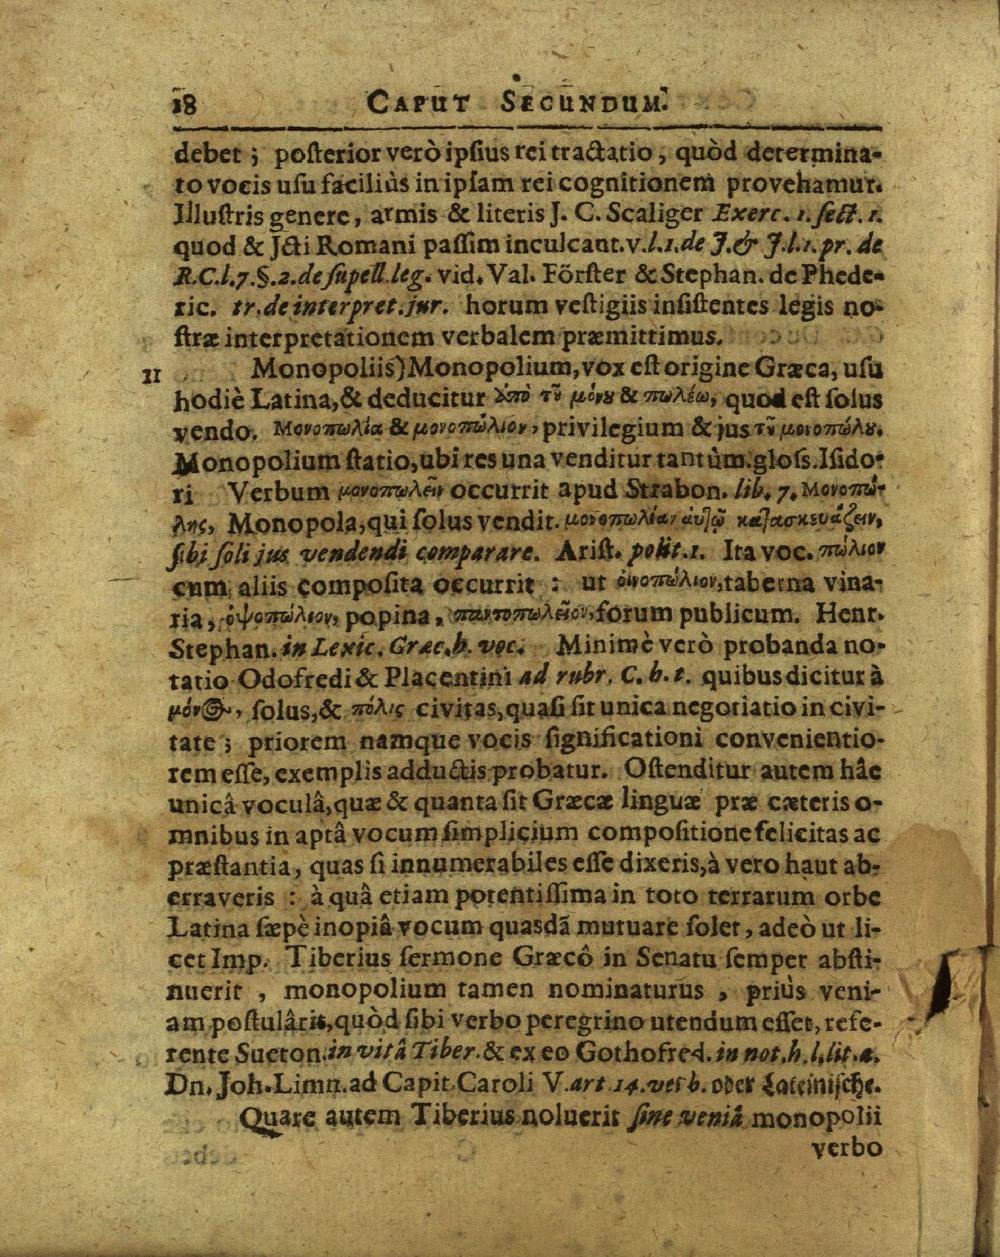 18 CAPUT SECUNDUM.
debet ; posterior verò ipsius rei tractatio, quòd determina-
to vocis usu faciliùs in ipsam rei cognitionem provehamur.
Illustris genere, armis & literis J. C. Scaliger Exerc. 1. sect. 1.
quod & Jcti Romani passim inculcant. v. l. 1. de J. & J. l. 1. pr. de
R. C. l. 7. §. 2. de supell. leg. vid. Val. Förster & Stephan. de Phede-
ric. tr. de interpret. jur. horum vestigiis insistentes legis no-
stræ interpretationem verbalem præmittimus.
11 Monopoliis) Monopolium, vox est origine Græca, usu
hodiè Latina, & deducitur ὑπὸ τῦ μόνȣ & πωλέω, quod est solus
vendo. Μονοπωλία & μονοπώλιον, privilegium & jus τῦ μονοπώλȣ.
Monopolium statio, ubi res una venditur tantùm. gloss. Isido-
ri Verbum μονοπωλεῖν occurrit apud Strabon. lib. 7. Μονοπώ-
λης, Monopola, qui solus vendit. μονοπωλίαν αὑτῷ κατασκευάζειν,
sibi soli jus vendendi comparare. Arist. polit. 1. Ita voc. πώλιον
cum aliis composita occurrit : ut οἰνοπώλιον, taberna vina-
ria, ὀψοπώλιον, popina, παντοπωλεῖον, forum publicum. Henr.
Stephan. in Lexic. Græc. h. voc. Minimè verò probanda no-
tatio Odofredi & Placentini ad rubr. C. h. t. quibus dicitur à
μόνος, solus, & πόλις civitas, quasi sit unica negotiatio in civi-
tate ; priorem namque vocis significationi convenientio-
rem esse, exemplis adductis probatur. Ostenditur autem hâc
unicâ voculâ, quæ & quanta sit Græcæ linguæ præ cæteris o-
mnibus in aptâ vocum simplicium compositione felicitas ac
præstantia, quas si innumerabiles esse dixeris, à vero haut ab-
erraveris : à quâ etiam potentissima in toto terrarum orbe
Latina sæpè inopiâ vocum quasdã mutuare solet, adeò ut li-
cet Imp. Tiberius sermone Græcô in Senatu semper absti-
nuerit , monopolium tamen nominaturus , priùs veni-
am postulârit, quòd sibi verbo peregrino utendum esset, refe-
rente Sueton. in vitâ Tiber. & ex eo Gothofred. in not. h. l. lit. a.
Dn. Joh. Limn. ad Capit. Caroli V. art 14. verb. oder Lateinische.
Quare autem Tiberius noluerit sine veniâ monopolii
verbo